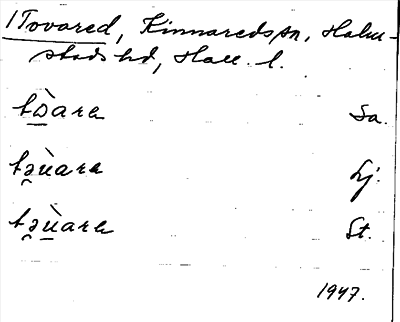 1 Tovared, Kinnareds sn, Halm-
stads hd, Hall. l.
tɔ̀ara Sa.
təùara Lj.
təùara St.
1947.